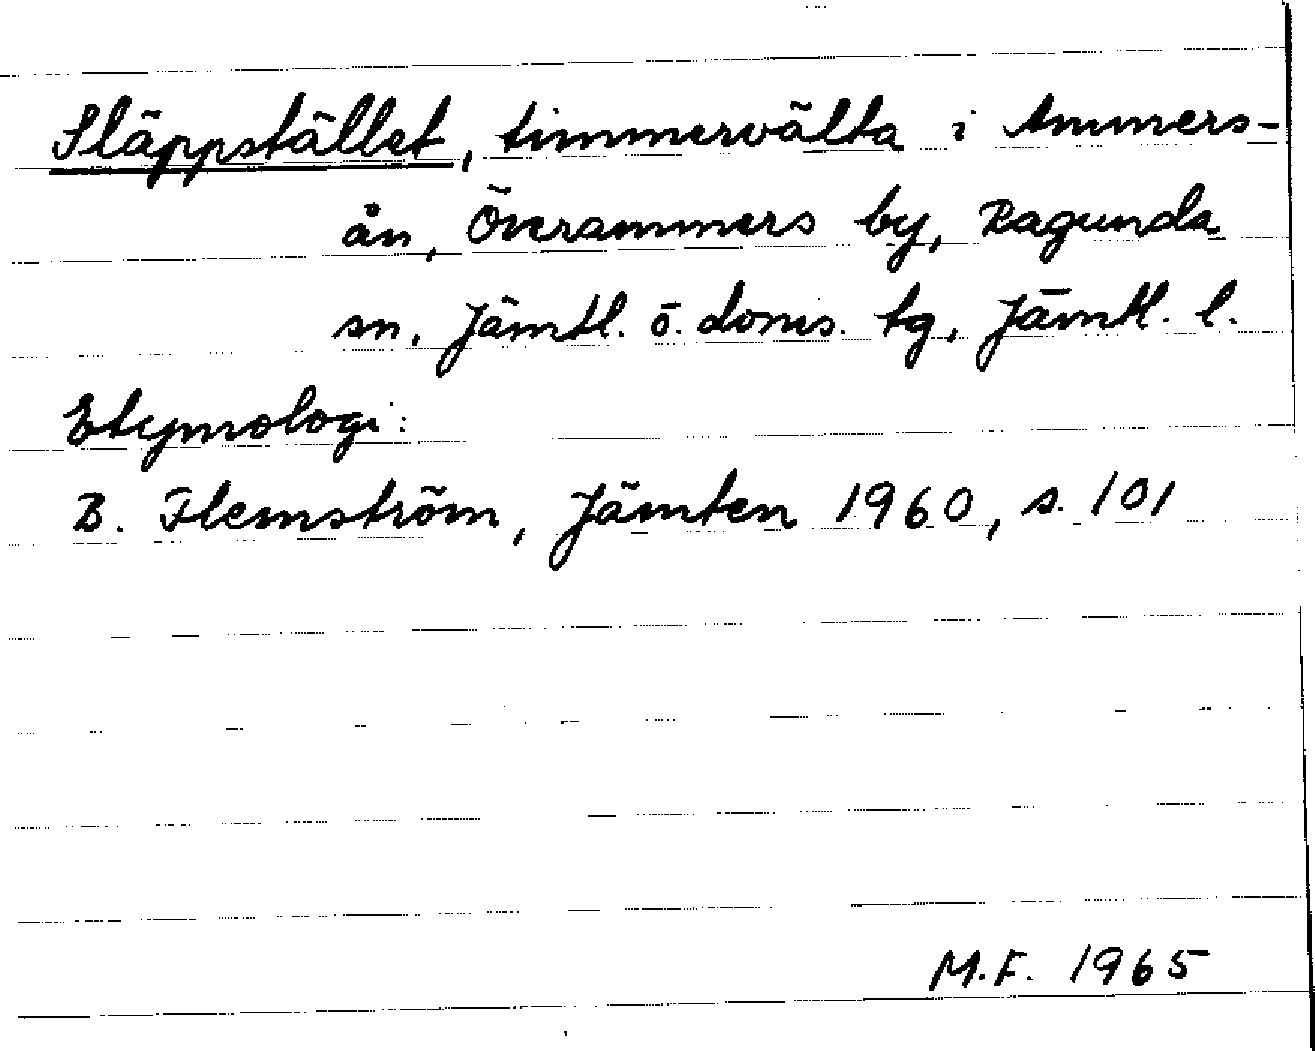 Släppstället, timmervälta i Ammers-
ån, Överammers by, Ragunda
sn, Jämtl. ö. doms. tg, Jämtl. l.
Etymologi:
B. Flemström, Jämten 1960, s. 101
M.F. 1965